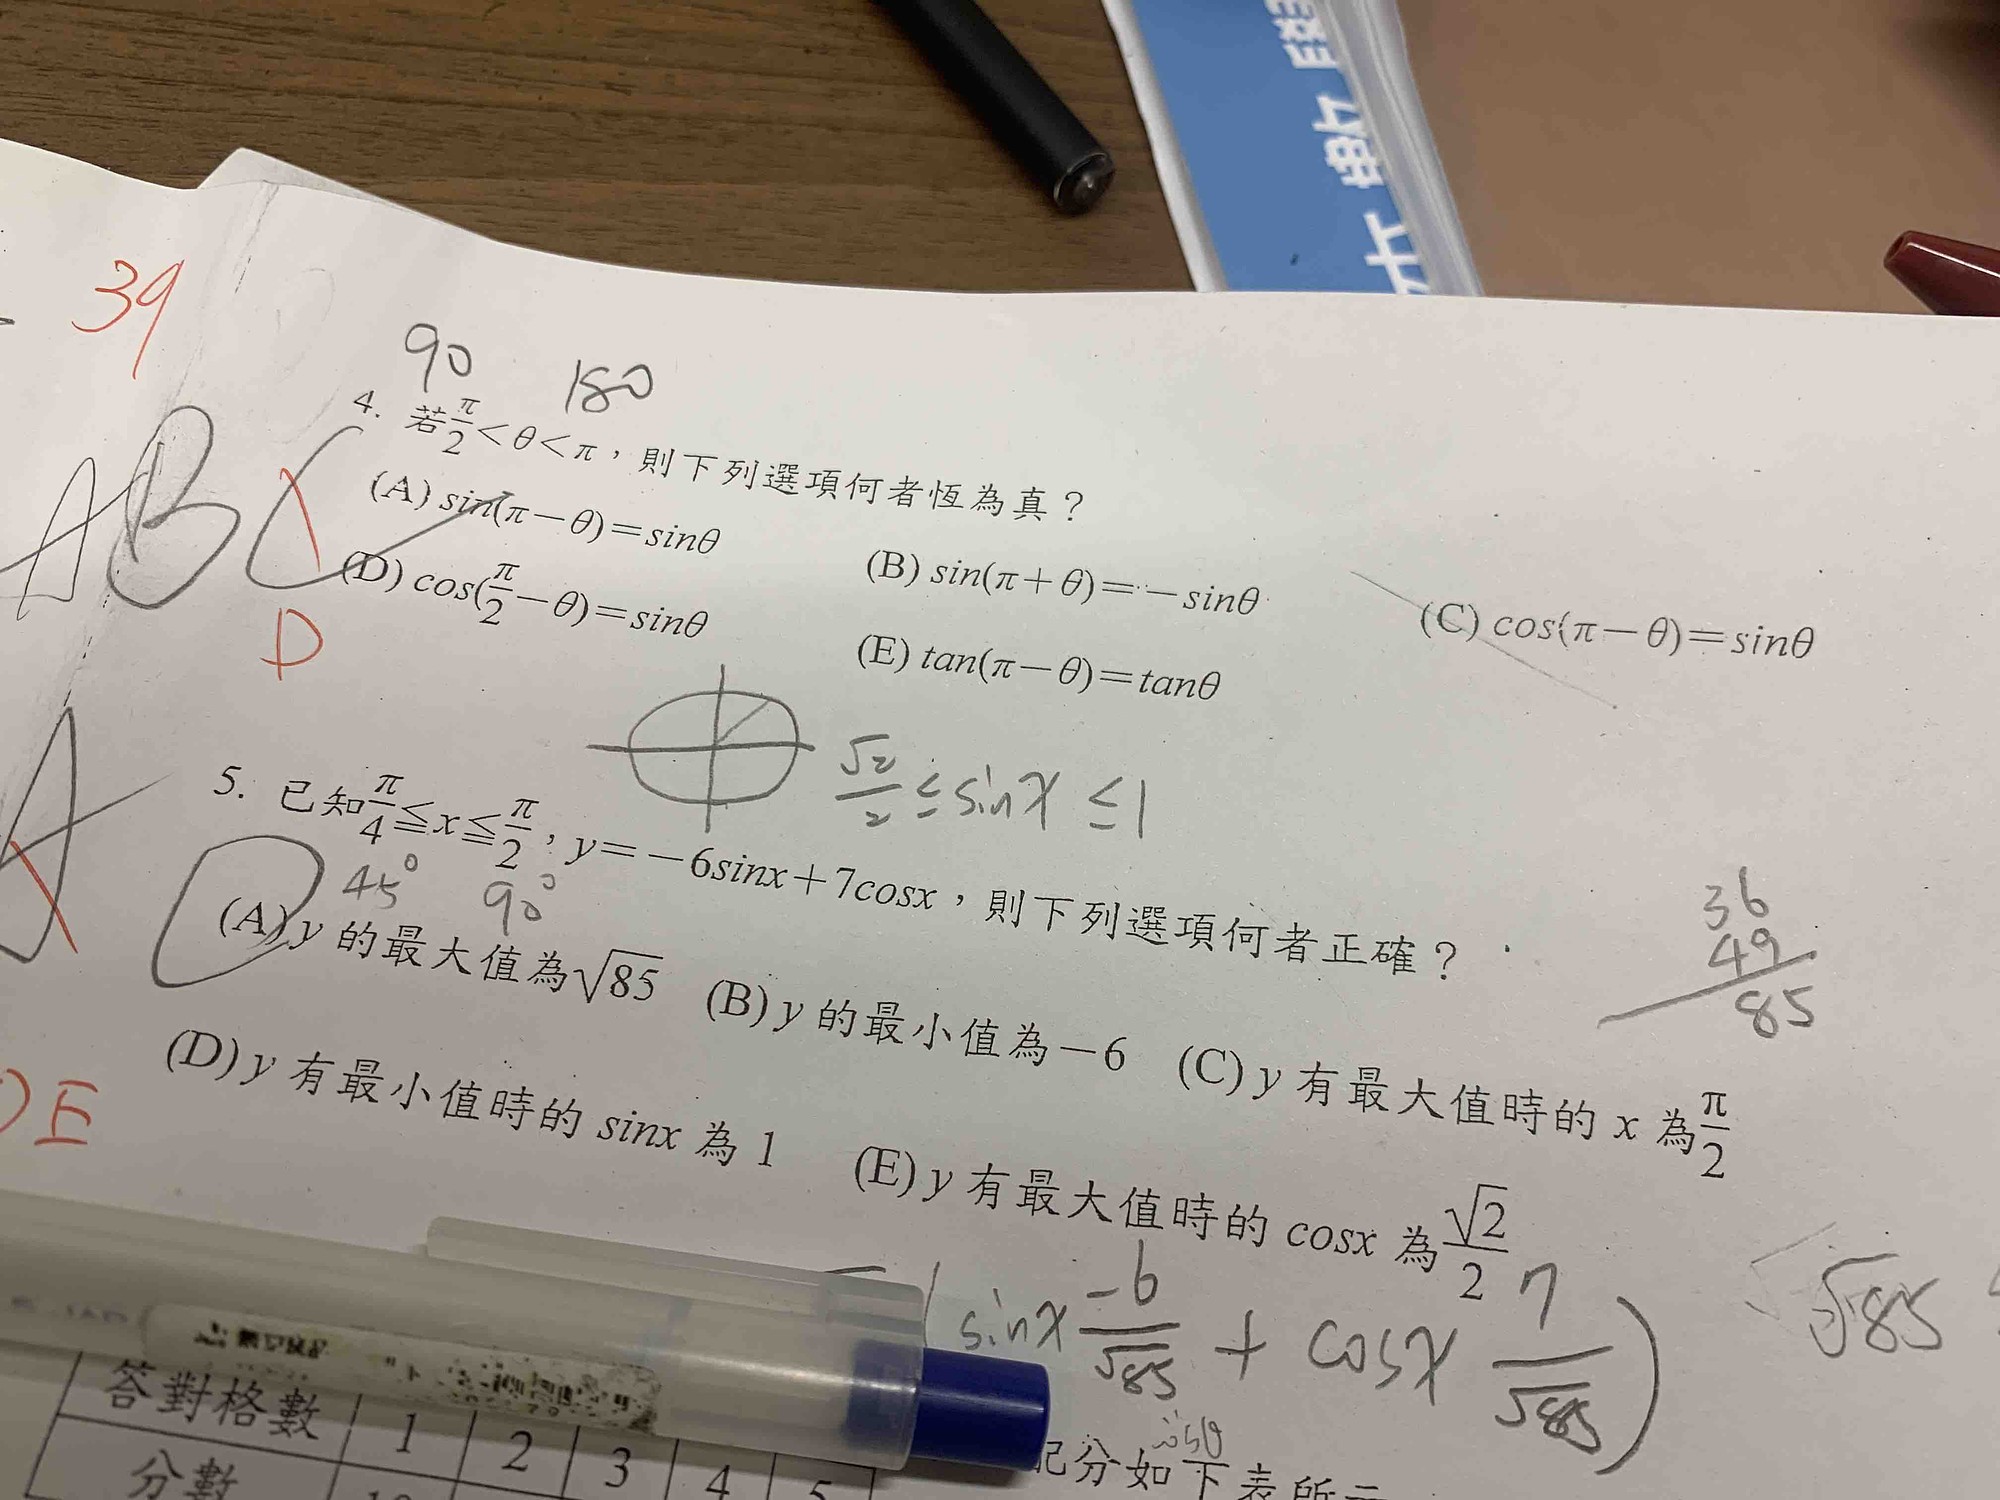 39
90 180
4. 若π/2<θ<π，則下列選項何者恆為真？
ABC
D
(A) sin(π－θ)＝sinθ (B) sin(π＋θ)＝－sinθ (C) cos(π－θ)＝sinθ
(D) cos(π/2－θ)＝sinθ (E) tan(π－θ)＝tanθ
√2/2 ≤ sinx ≤ 1
5. 已知π/4≦x≦π/2，y＝－6sinx＋7cosx，則下列選項何者正確？
45° 90°
A
36
49
85
(A) y 的最大值為√85 (B) y 的最小值為－6 (C) y 有最大值時的 x 為π/2
(D) y 有最小值時的 sinx 為 1 (E) y 有最大值時的 cosx 為√2/2
DE
(sinx -6/√85 + cosx 7/√85)
√85
配分如下表所示
答對格數 1 2 3 4 5
分數